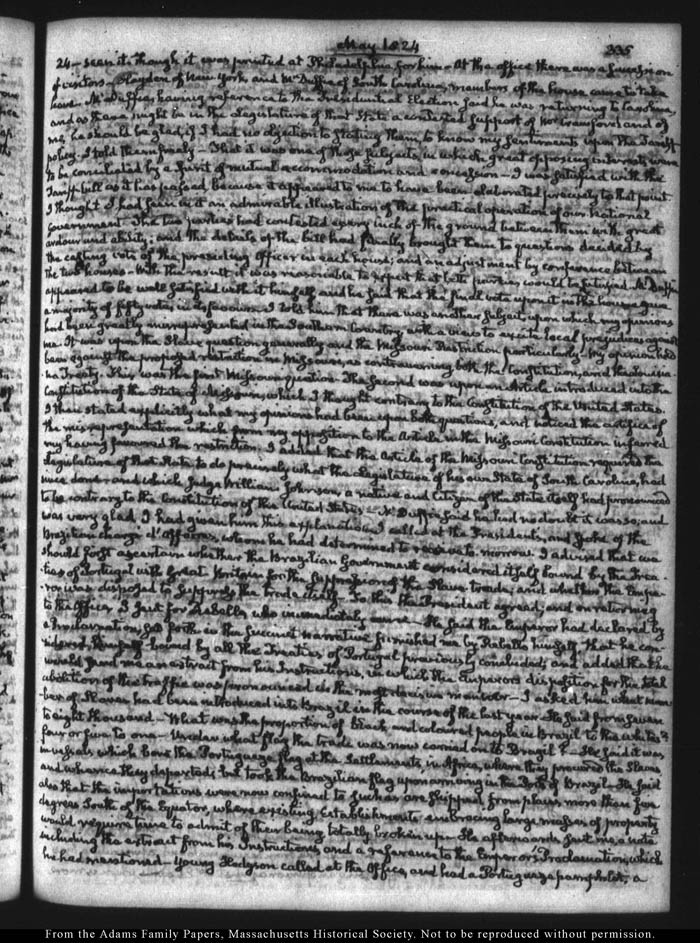 May 1824
335
24 – seen it though it was printed at Philadelphia for him – At the office there was a succession
of visitors – Hayden of New York and Mr. Duffie of South Carolina, members of the house came to take
leave. Mr Duffie, having reference to the Presidential Election said he was returning to Carolina,
and as there might be in the Legislature of that State a contested support of Mr Crawford and of
me, he should be glad, if I had no objection to stating them, to know my sentiments upon the Tariff
policy. I told them freely – That it was one of those subjects, in which great opposing interests were
to be conciliated by a Spirit of mutual accommodation and concession – I was satisfied with the
Tariff bill as it has passed, because it appeared to me to have been elaborated precisely to that point
I thought I had seen in it an admirable illustration of the practical operation of our National
Government. The two parties had contested every inch of the ground between them with great
ardour and ability; and the details of the bill had finally brought them to questions decided by
the casting vote of the presiding Officer in each house; and an adjustment by conference between
the two houses – With this result it was reasonable to expect that both parties would be satisfied. Mr Duffie
appeared to be well satisfied with it himself and he said that the final vote upon it in the house gave
a majority of fifty votes in its favour. I told him that there was another subject upon which my opinions
had been greatly misrepresented in the Southern Country, with a view to excite local prejudices against
me. It was upon the Slave question generally and the Missouri Restriction particularly. My opinion had
been against the proposed restriction in Missouri, as contravening both the Constitution, and the Louisia-
na Treaty. This was the first Missouri question. The second was upon an Article introduced into the
Constitution of the State of Missouri, which I thought contrary to the Constitution of the United States.
I then stated explicitly what my opinions had been upon both questions, and noticed the artifice of
the misrepresentation which from my opposition to the Article in the Missouri Constitution inferred
my having favoured the restriction. I added that the Article of the Missouri Constitution required the
Legislature of that State to do precisely what the Legislature of his own State of South Carolina, had
since done and which Judge William Johnson, a native and Citizen of the State itself had pronounced
to be contrary to the Constitution of the United States – Mr Duffie said he had no doubt it was so; and
was very glad I had given him this explanation. I called at the Presidents, and spoke of the
Brazilian chargé d'affaires, whom he had determined to receive to-morrow. I advised that we
should first ascertain whether the Brazilian Government considered itself bound by the Trea-
ties of Portugal with Great Britain for the suppression of the Slave trade; and whether the Empe-
ror was disposed to suppress the trade itself – To this the President agreed; and on returning
to the Office, I sent for Rebello, who immediately came – He said the Emperor had declared by
a Proclamation, set forth in the succinct narrative furnished me by Rebello himself, that he con-
sidered himself bound by all the Treaties of Portugal previously concluded; and added that he
would send me an extract from his Instructions, in which the Emperor's disposition for the total
abolition of the traffic was pronounced in the most decisive manner – I asked him what num-
ber of Slaves had been introduced into Brazil in the course of the last year. He said from seven
to eight thousand – What was the proportion of black and coloured people in Brazil to the whites?
four or five to one – Under what flag the trade was now carried on to Brazil? – He said it was
in vessels which bore the Portuguese flag at the Settlements in Africa, where they procured the Slaves
and whence they departed; but took the Brazilian flag upon arriving in the Ports of Brazil – He said
also that the importations were now confined to such as are shipped from places more than five
degrees South of the Equator, where existing establishments embracing large masses of property
would require time to admit of their being totally broken up – He afterwards sent me a note
including the extract from his Instructions, and a reference to the Emperor's Proclamation, which
he had mentioned – Young Hodgson called at the Office, and had a Portuguese pamphlet, a
From the Adams Family Papers, Massachusetts Historical Society. Not to be reproduced without permission.